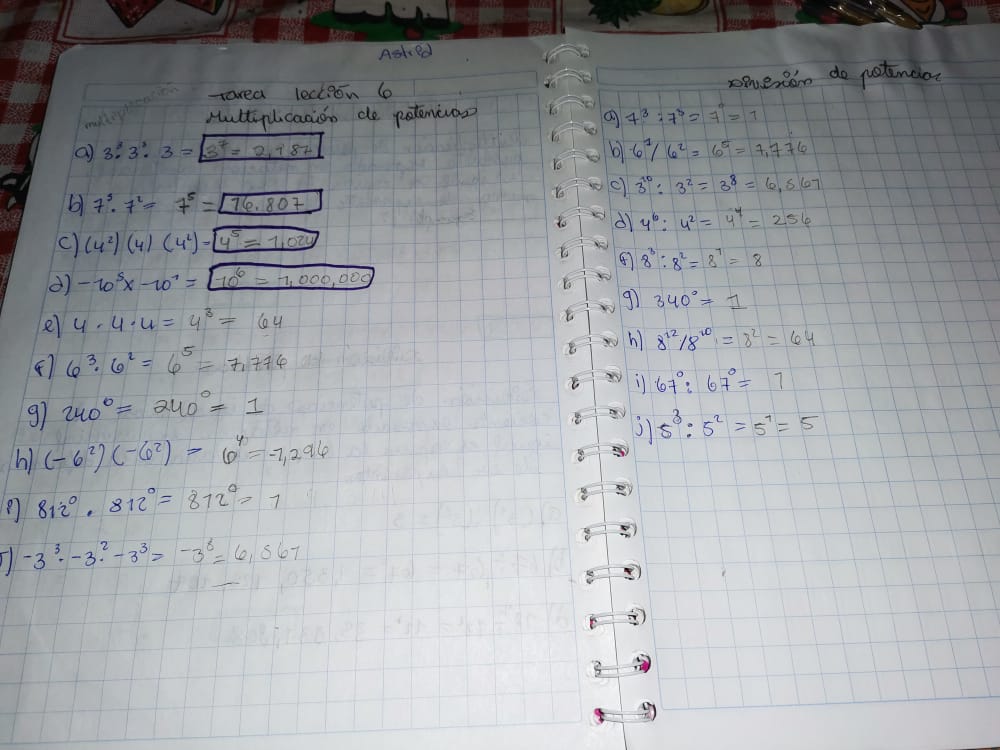 Astrid
Tarea lección 6
Multiplicación de potencias
a) 3³·3³·3 = 3⁷ = 2,187
b) 7³·7² = 7⁵ = 16.807
c) (4²) (4) (4²) = 4⁵ = 1,024
d) -10⁵x -10¹ = 10⁶ = 1,000,000
e) 4 · 4 · 4 = 4³ = 64
f) 6³·6² = 6⁵ = 7,776
g) 240⁰ = 240⁰ = 1
h) (-6²) (-6²) = 6⁴ = -1,296
i) 812⁰ . 812⁰ = 812⁰ = 1
j) -3³·-3²·-3³ = -3⁸ = 6,561
División de potencias
a) 7³ : 7³ = 7⁰ = 1
b) 6⁷/6² = 6⁵ = 7,776
c) 3¹⁰ : 3² = 3⁸ = 6,561
d) 4⁶ : 4² = 4⁴ = 256
f) 8³ : 8² = 8¹ = 8
g) 340⁰ = 1
h) 8¹²/8¹⁰ = 8² = 64
i) 67⁰ : 67⁰ = 1
j) 5³ : 5² = 5¹ = 5